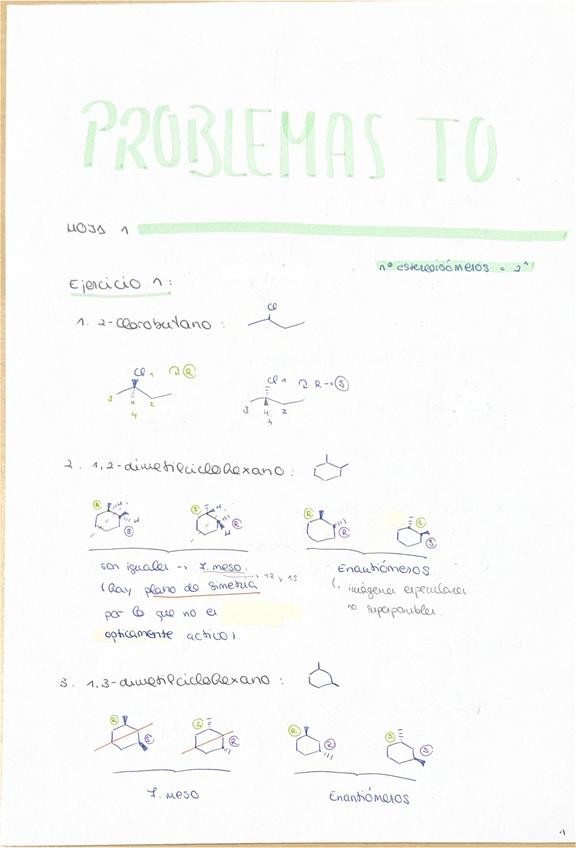 PROBLEMAS TO
HOJA 1
nº estereoisómeros = 2^n
Ejercicio 1:
1. 2-clorobutano :
Cl
Cl 1 R
3 2
H
4
Cl 1 R→S
3 4 2
H
2. 1,2-dimetilciclohexano :
R H S H
S H R H
R R
S S
son iguales → f. meso.
(hay plano de simetría
por lo que no es
opticamente activo)
1R y 1S
Enantiómeros
imágenes especulares
no superponibles
3. 1,3-dimetilciclohexano :
R S
S R
R R
S S
f. meso
Enantiómeros
1